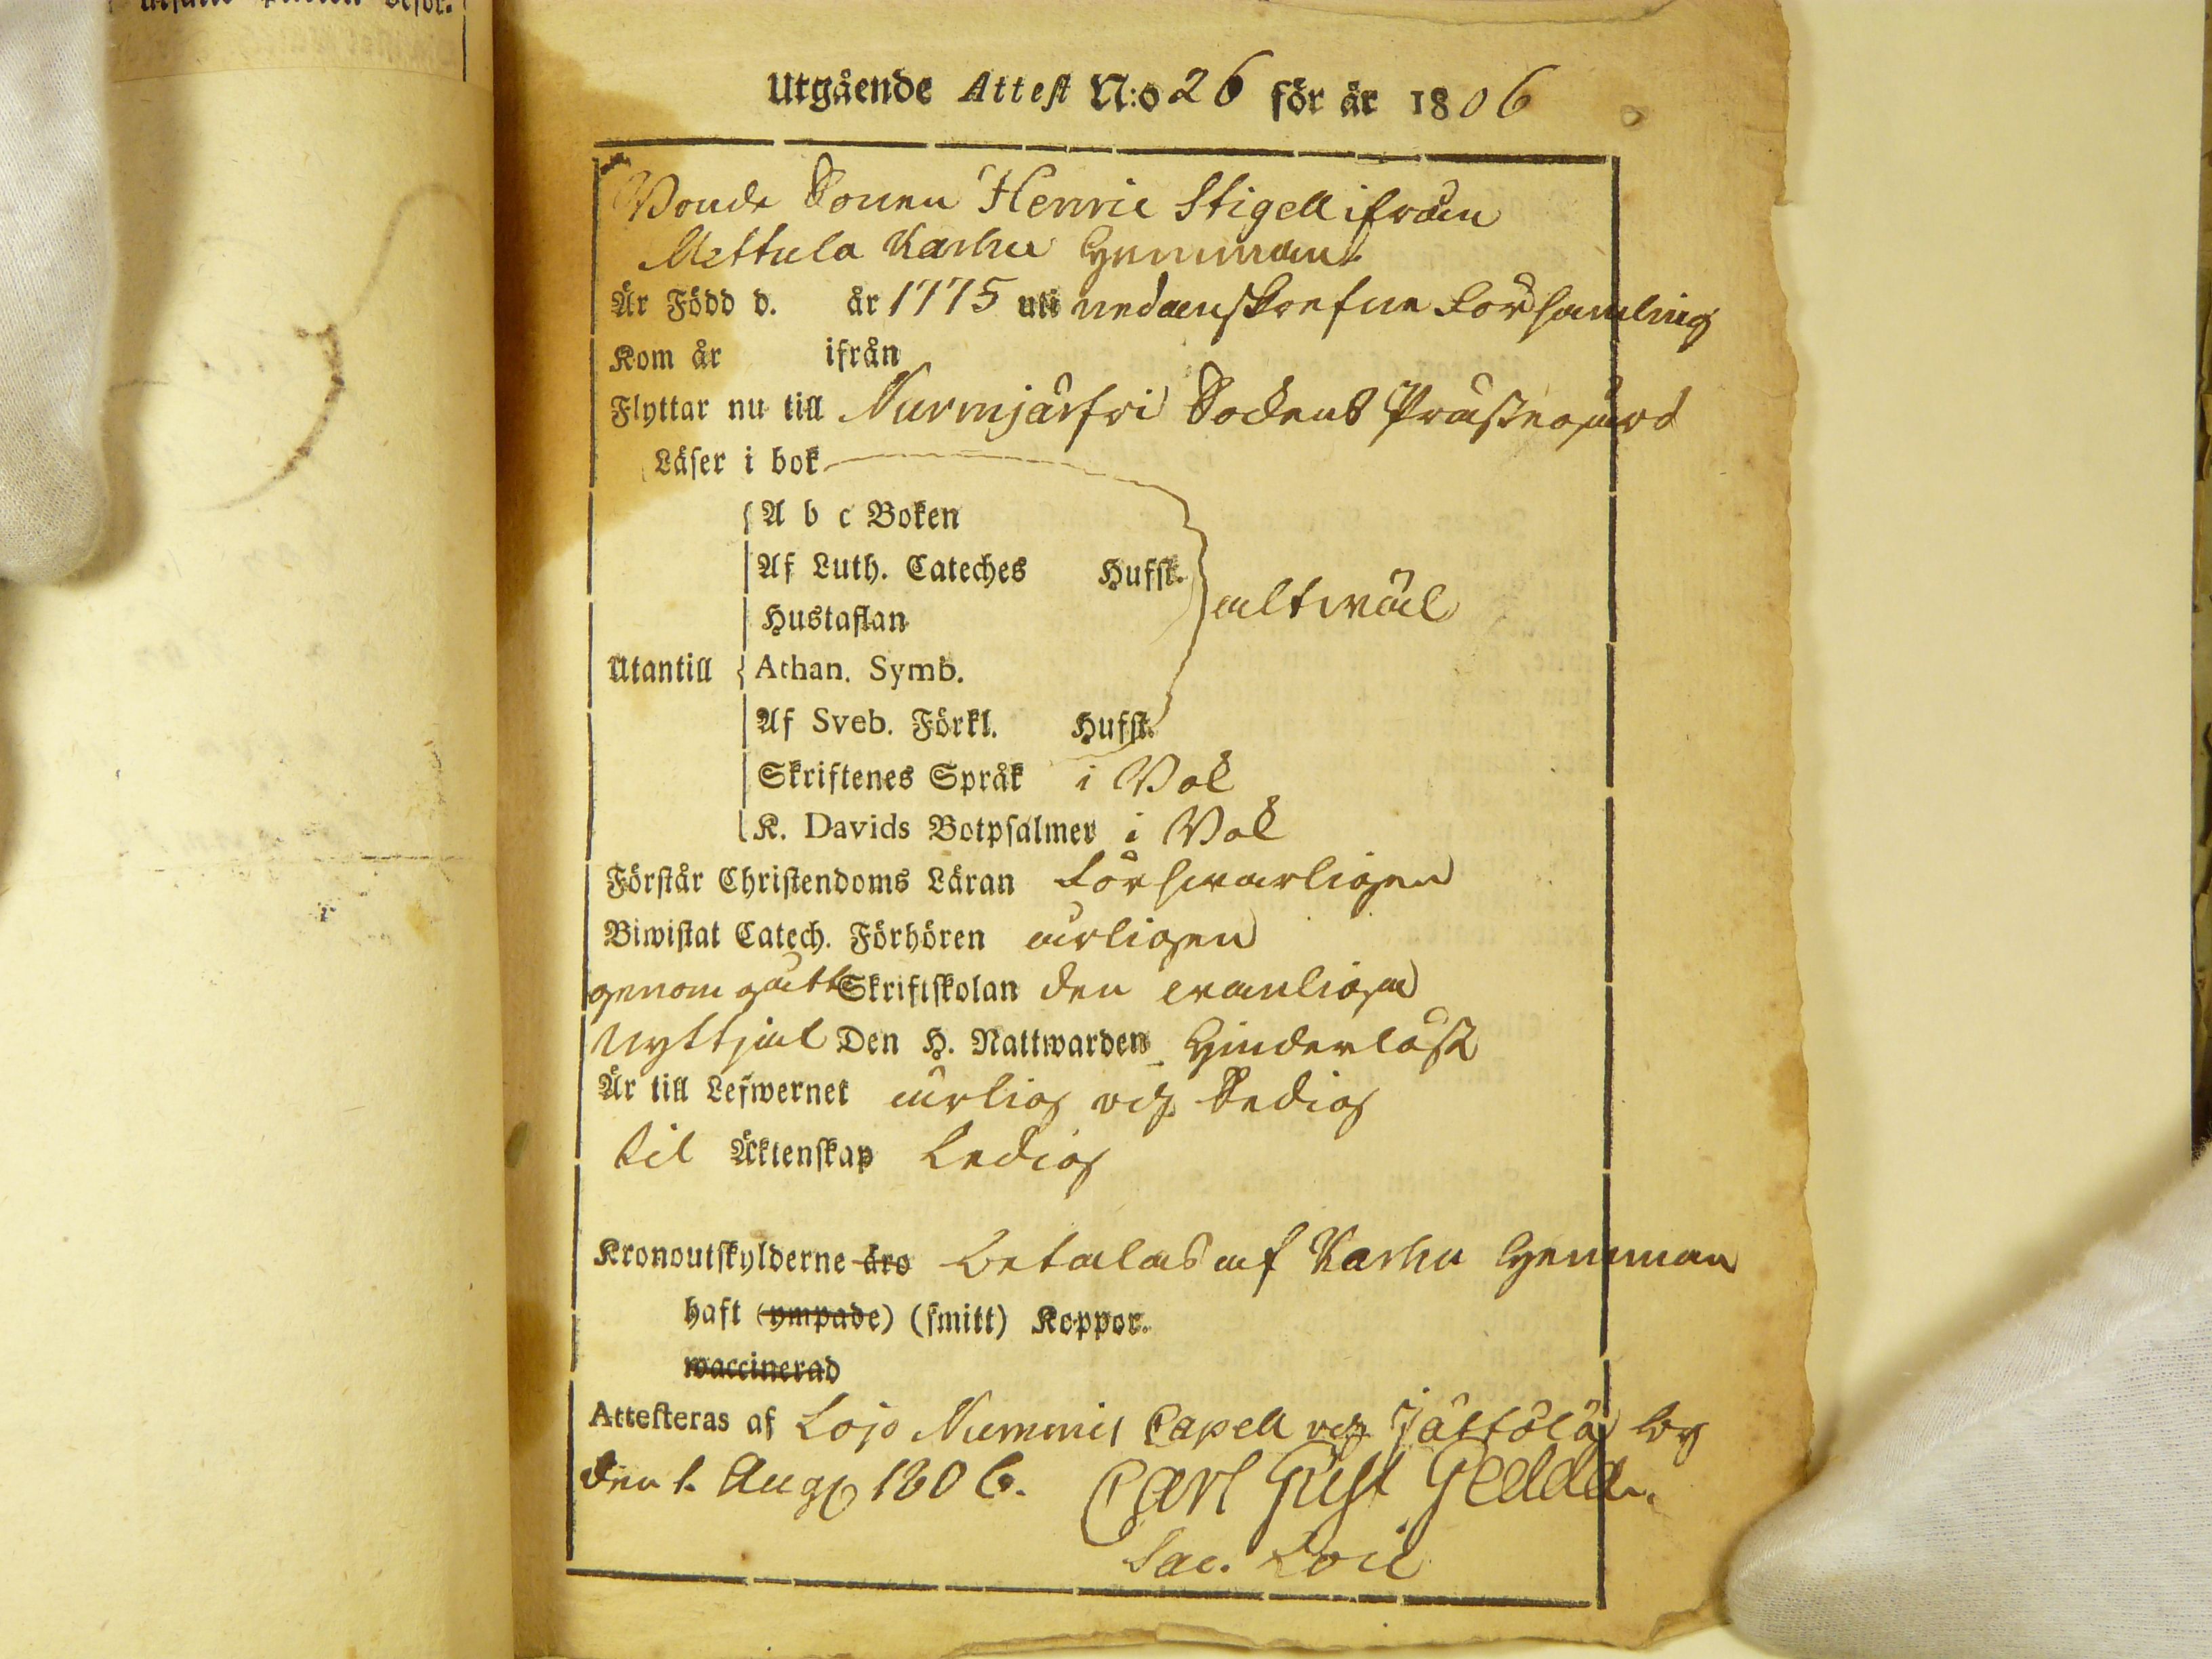 Utgående Attest N:o 26 för år 1806
Bonde Sonen Henric Stigell ifrån
Mettula Karhu Hemman
Är Född d. år 1775 uti nedanskrefne Församling
Kom år ifrån
Flyttar nu till Nurmjärfvi Sockens Prästegård
Läser i bok
A b c Boken
Af Luth. Cateches Hufst.
Hustaflan
altwäl
Utantill Athan. Symb.
Af Sveb. Förkl. Hufst.
Skriftenes Språk i Bok
K. Davids Botpsalmer i Bok
Förstår Christendoms Läran Förswarligen
Biwistat Catech. Förhören årligen
genom gått Skriftskolan den wanliga
Nyttjat Den H. Nattwarden Hinderlöst
Är till Lefwernet ärlig och Sedig
til Äktenskap Ledig
Kronoutskylderne äro betalas af Karhu Hemman
haft (ympade) (smitt) Koppor.
waccinerad
Attesteras af Lojo Nummis Capell och Jättölä bg
den 1. Aug 1806. Carl Gust Gedda.
Sac.